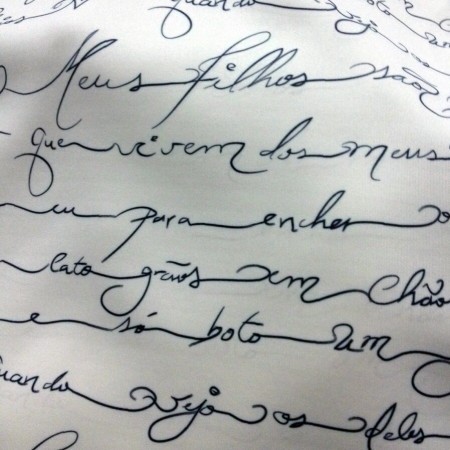 quando vejo
Meus filhos são
que vivem dos meus
eu para encher o
cato grãos em chão
e só boto um
quando vejo os deles